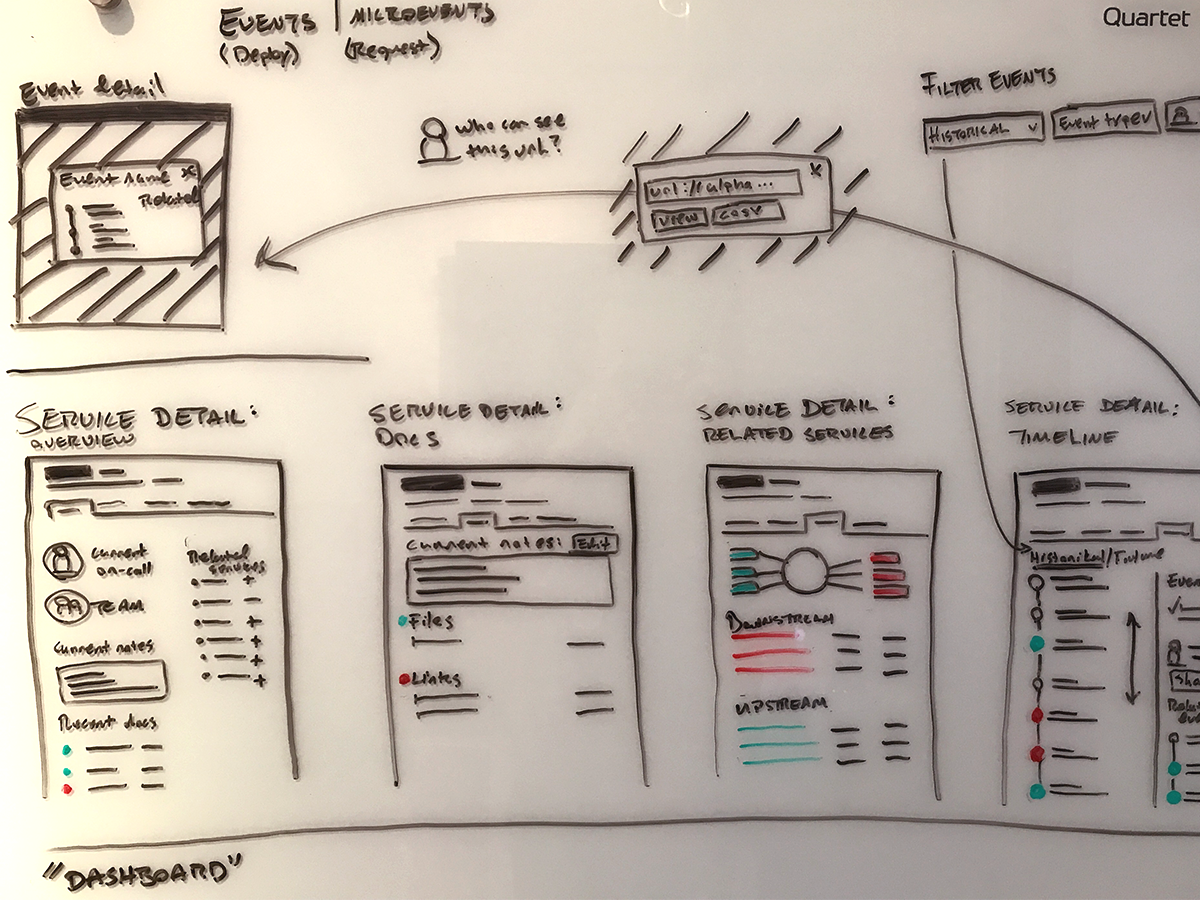 EVENTS | MICROEVENTS
(Deploy) (Request)
Quartet
Event detail
Event name x
Related
who can see
this url?
url://alpha...
x
view
copy
FILTER EVENTS
HISTORICAL v
Event type v
SERVICE DETAIL:
OVERVIEW
Current
on-call
TEAM
Current notes
Recent docs
Related
services
SERVICE DETAIL:
DOCS
Current notes: Edit
Files
Links
SERVICE DETAIL:
RELATED SERVICES
DOWNSTREAM
UPSTREAM
SERVICE DETAIL:
TIMELINE
Historical/Future
Even
Sha
Relat
eve
"DASHBOARD"